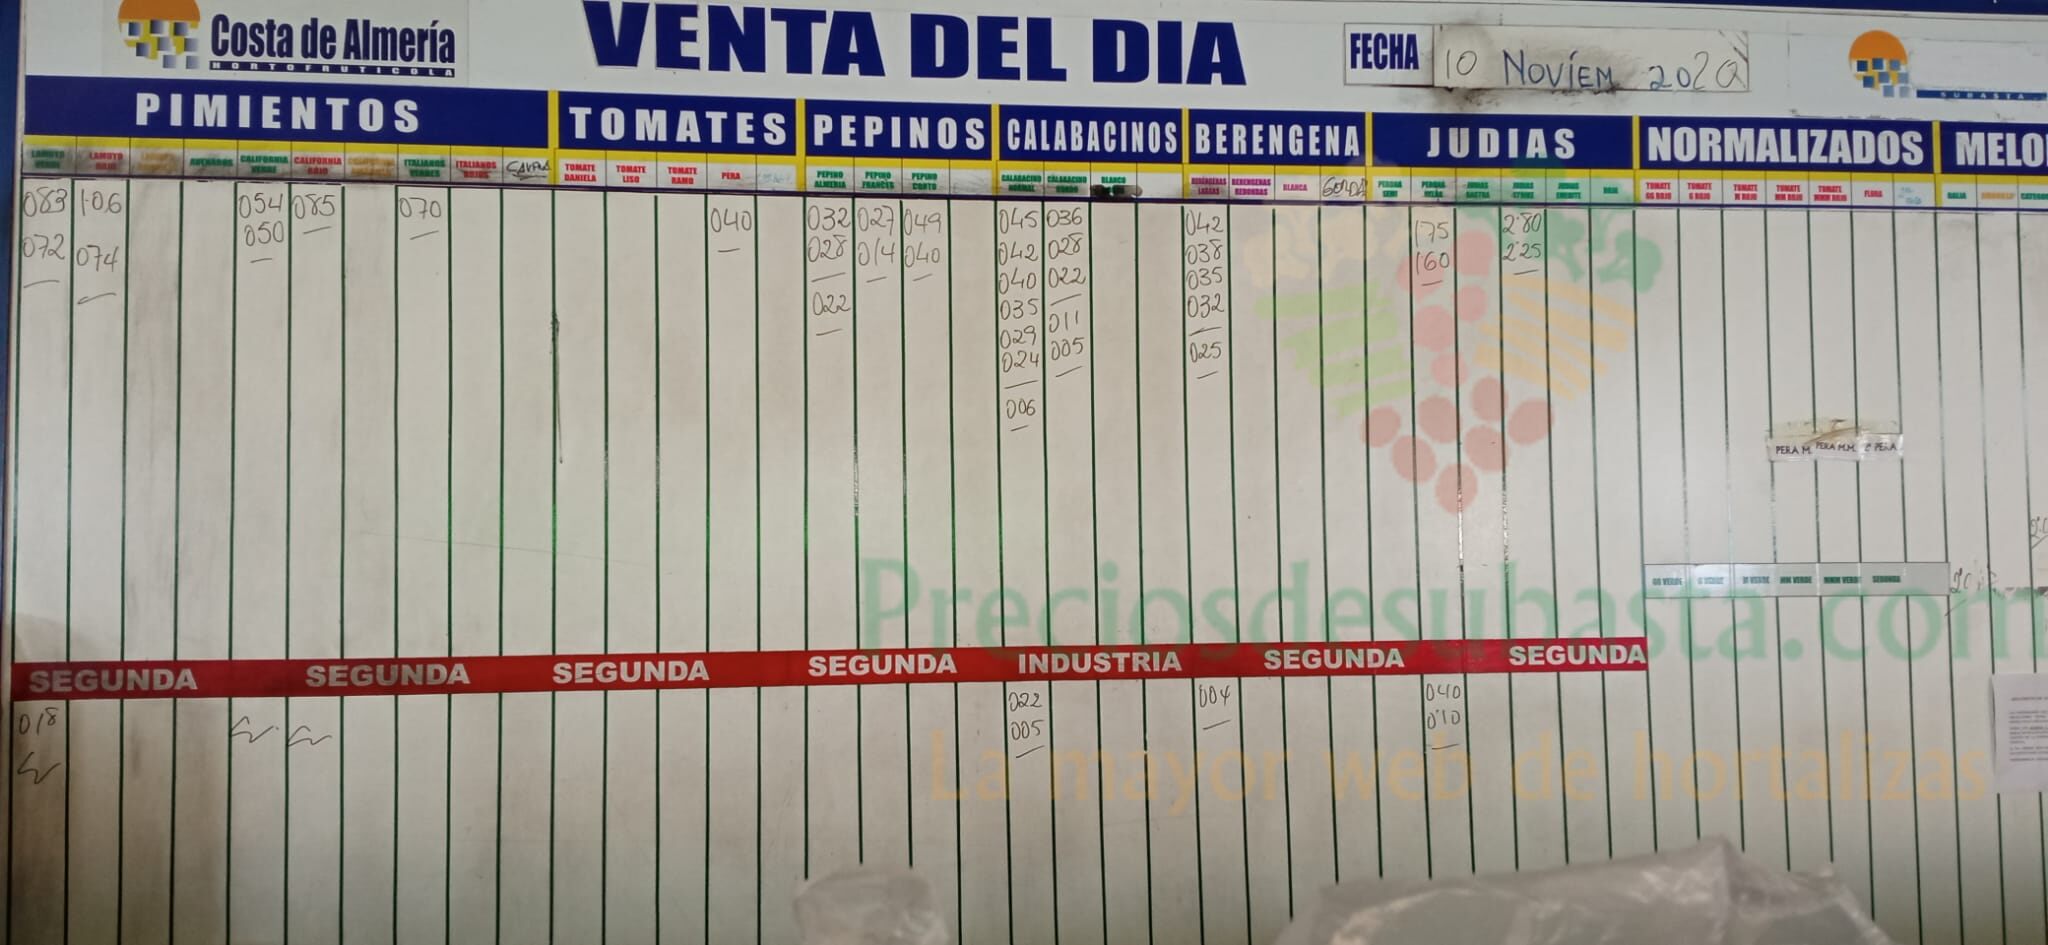 Costa de Almería
HORTOFRUTICOLA
VENTA DEL DIA
FECHA 10 NOVIEM 2020
SUBASTA
PIMIENTOS TOMATES PEPINOS CALABACINOS BERENGENA JUDIAS NORMALIZADOS MELO
LAMUYO VERDE
LAMUYO ROJO
CALIFORNIA VERDE
CALIFORNIA ROJO
ITALIANOS VERDES
ITALIANOS ROJOS
TOMATE DANIELA
TOMATE LISO
TOMATE RAMO
PERA
PEPINO ALMERIA
PEPINO FRANCES
PEPINO CORTO
CALABACINO NORMAL
CALABACINO GORDO
BLANCO
BERENGENAS LARGAS
BERENGENAS REDONDAS
BLANCA
GORDA
TOMATE GG ROJO
TOMATE G ROJO
TOMATE M ROJO
TOMATE MM ROJO
TOMATE MMM ROJO
FLORA
GALIA
083 1·06 054 085 070 040 032 027 049 045 036 042 175 2'80
072 074 050 028 014 040 042 028 038 160 2'25
040 022 035
022 035 011 032
029 005 025
024
006
PERA M. PERA M.M. 2ª PERA
GG VERDE G VERDE M VERDE MM VERDE MMM VERDE SEGUNDA
Preciosdesubasta.com
SEGUNDA SEGUNDA SEGUNDA SEGUNDA INDUSTRIA SEGUNDA SEGUNDA
018 022 004 040
005 0'10
La mayor web de hortalizas